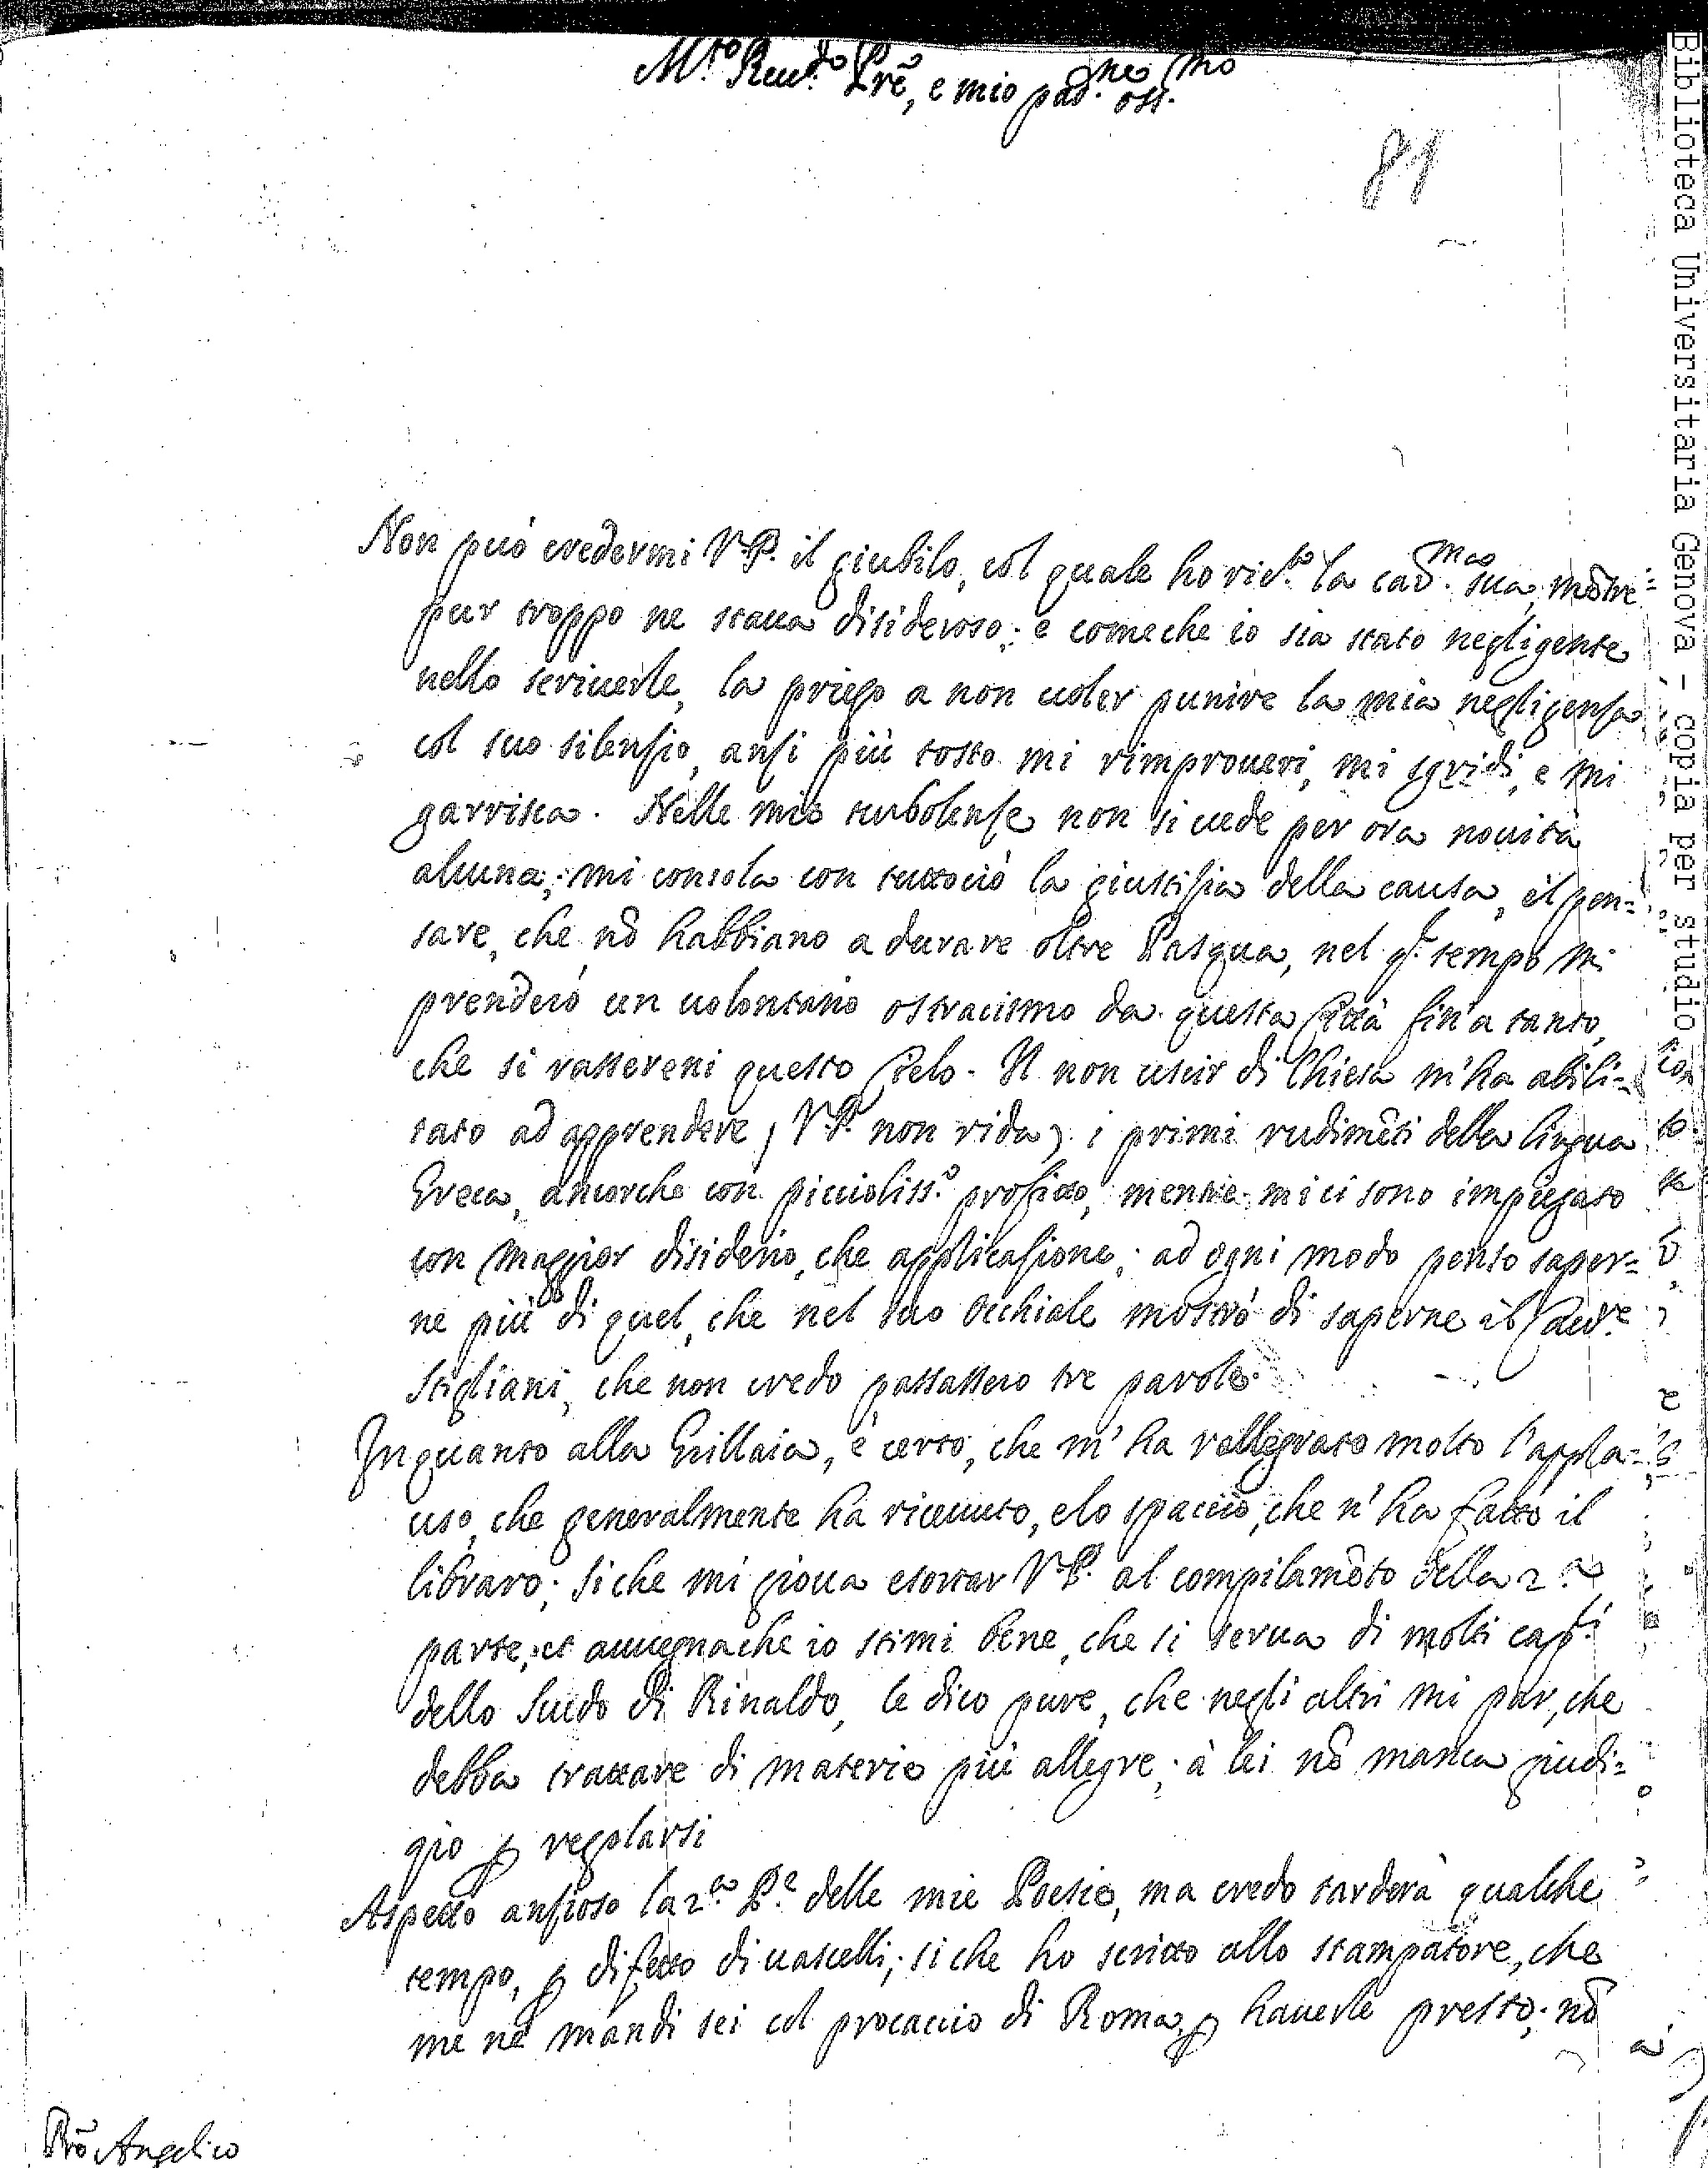 M.to Reu.do Prẽ, e mio pad.ne oss.mo
81
Non può credermi V.P. il giubilo, col quale ho ric.to la car.ma sua, mẽtre
pur troppo ne staua disideroso; e comeche io sia stato negligente
nello scriuerle, la priego a non uoler punire la mia negligenſa
col suo silenſio, anſi più tosto mi rimproueri, mi sgridi, e mi
garrisca. Nelle mie turbolenſe non si uede per ora nouità
alcuna; mi consola con tuttociò la giustiſia della causa, e'l pen=
sare, che nõ habbiano a durare oltre Pasqua, nel q.l tempo mi
prenderò un uolontario ostracismo da questa Città fin'a tanto,
che si rassereni questo Cielo. Il non uscir di Chiesa m'ha abili=
tato ad apprendere (V.P. non rida) i primi rudimẽti della lingua
Greca, ancorche con piccioliss.o profitto, mentre mi ci sono impiegato
con maggior disiderio, che applicaſione; ad ogni modo penso saper=
ne più di quel, che nel suo Occhiale mostrò di saperne il Cau.re
Stigliani, che non credo passassero tre parole.
Inquanto alla Grillaia, è certo, che m'ha rallegrato molto l'appla=
uso, che generalmente ha riceuuto, e lo spaccio, che n'ha fatto il
libraro; siche mi gioua esortar V.P. al compilamẽto della 2.a
parte, et auuegnache io stimi bene, che si serua di molti cap.li
dello Scudo di Rinaldo, le dico pure, che negli altri mi par, che
debba trattare di materie più allegre; à lei nõ manca giudi=
gio ꝑ regolarsi
Aspetto anſioso la 2.a P.e delle mie Poesie, ma credo tarderà qualche
tempo, ꝑ difetto di uascelli; si che ho scritto allo stampatore, che
me ne mandi sei col procaccio di Roma, ꝑ hauerle presto; nõ
Prõ Angelico
Biblioteca Universitaria Genova - copia per studio